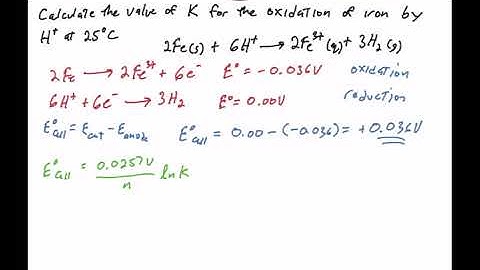 Calculate the value of K for the oxidation of iron by
H⁺ at 25°C
2Fe(s) + 6H⁺ → 2Fe³⁺(aq) + 3H₂(g)
2Fe → 2Fe³⁺ + 6e⁻ E° = -0.036V oxidation
6H⁺ + 6e⁻ → 3H₂ E° = 0.00V reduction
E°cell = Ecat - Eanode E°cell = 0.00 - (-0.036) = +0.036V
E°cell = 0.0257V / n ln K